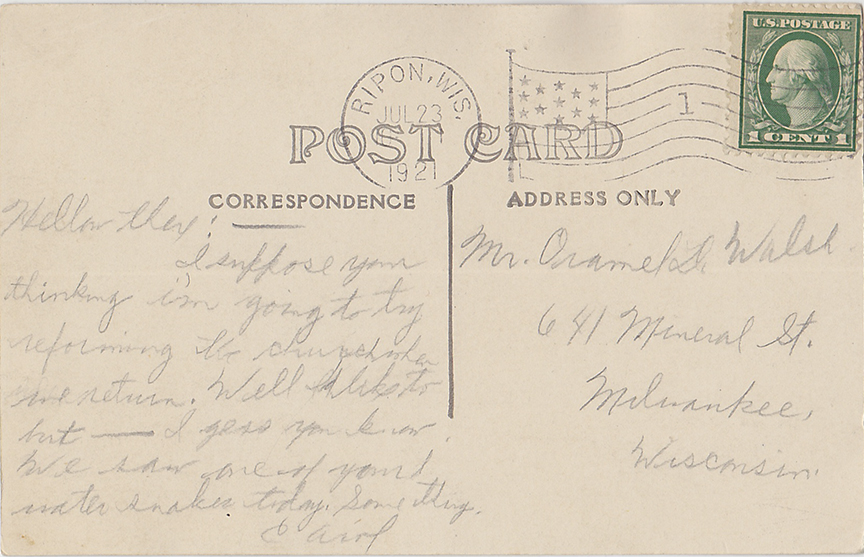 U.S. POSTAGE
1 CENT 1
RIPON, WIS.
JUL 23
1921
1
POST CARD
CORRESPONDENCE
ADDRESS ONLY
Hellow
I suppose your
thinking i'm going to try
reforming the church when
we return. Well I'd like to
but — I gess you know.
We saw one of your
water snakes today. Some thing.
Mr. Oramel D. Walsh
641 Mineral St.
Milwaukee,
Wisconsin.